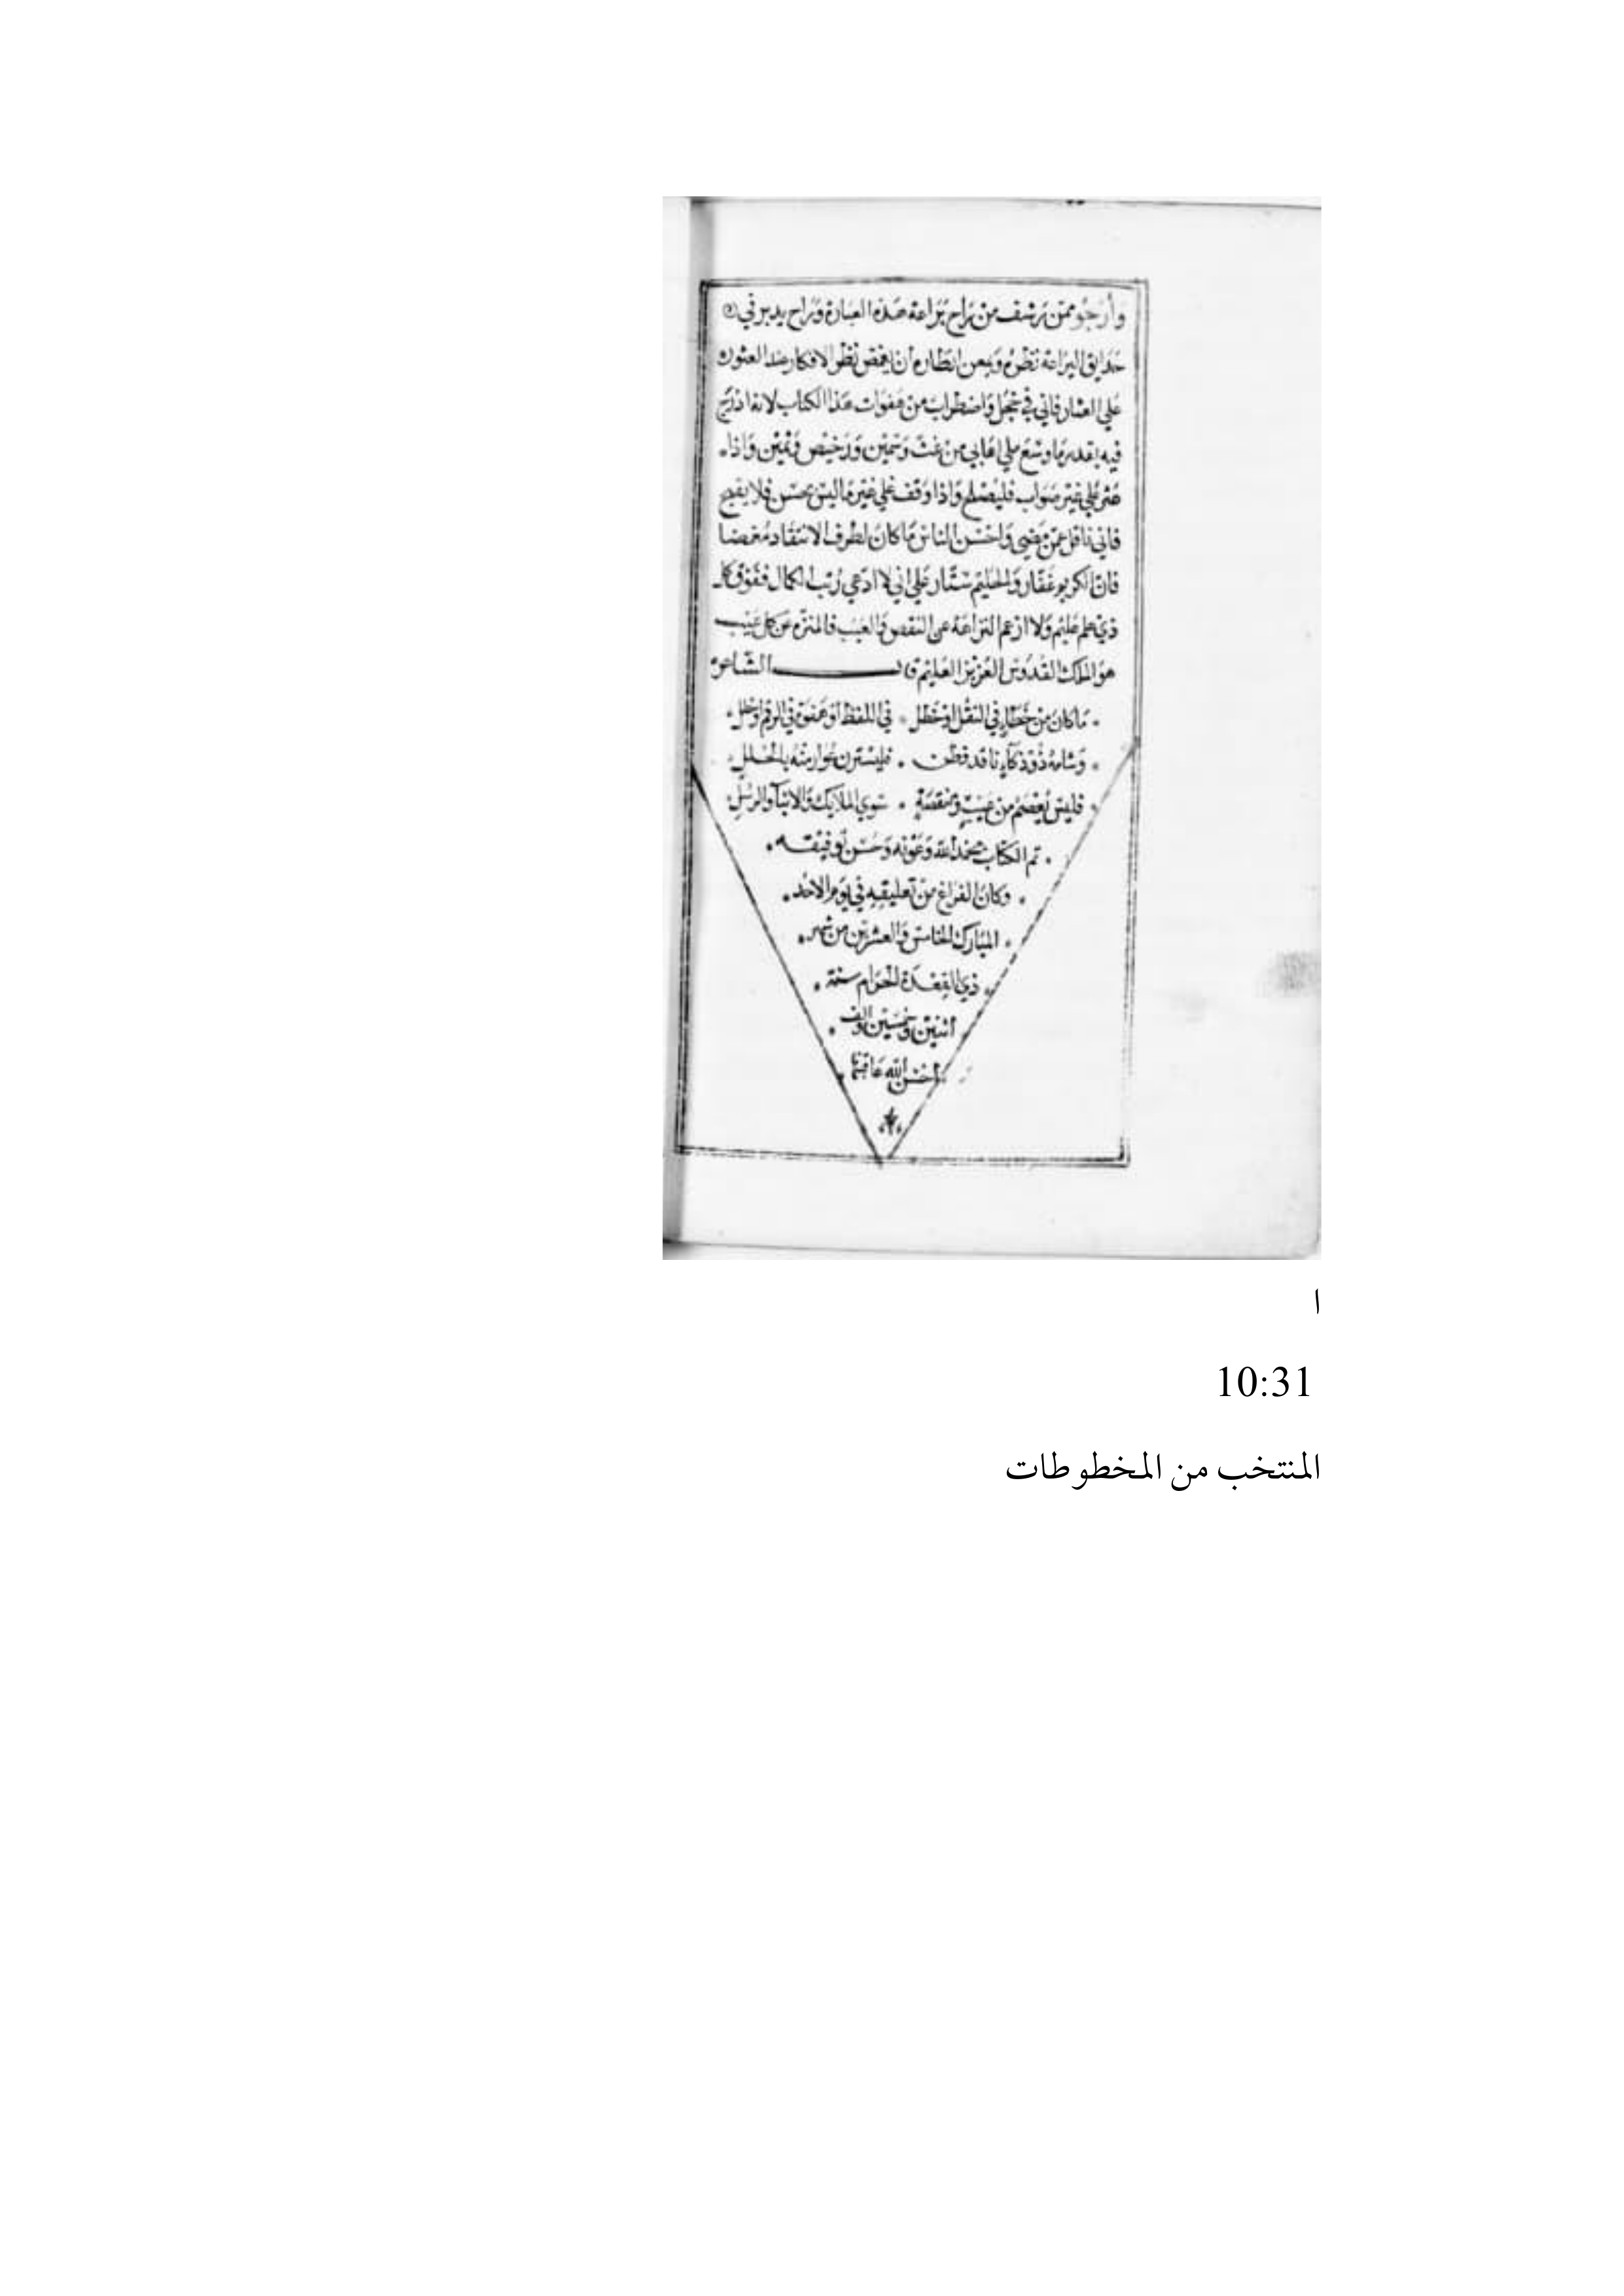 وأرجو ممن ترشف من راح براعة هذه العبارة وراح يدير في
حدايق البراعة نظره ويمعن انظاره أن يغمض نظر الافكار عند العثور
علي العثار فاني في خجل واضطراب من هفوات هذا الكتاب لانه ادرج
فيه بقدر ما وسع ملي اهابي من غث وسمين ورخيص وثمين واذا
عثر علي غير صواب فليصلح واذا وقف علي غير ما ليس بحسن فلا يقبح
فاني ناقل عمن مضي واحسن الناس ما كان لطرف الانتقاد مغمضا
فان الكريم غفار والحليم ستار علي اني لا ادعي رتب الكمال ففوق كل
ذي علم عليم ولا ازعم النزاهة عن النقص والعيب فالمنزه عن كل عيب
هو الملك القدوس العزيز العليم قال الشاعر
ما كان من خطاء في النقل او خطل في اللفظ او هفوة في الرقم او خلل
وشامه ذو ذكاء ناقد فطن فليسترن عوار منه بالحلل
فليس يعصم من عيب ومنقصة سوي الملايك والانبيآ والرسل
تم الكتاب بحمد الله وعونه وحسن توفيقه
وكان الفراغ من تعليقه في يوم الاحد
المبارك الخامس والعشرين من شهر
ذي القعدة الحرام سنة
اثنين وخمسين والف
احسن الله عاقبتها
ا
10:31
المنتخب من المخطوطات